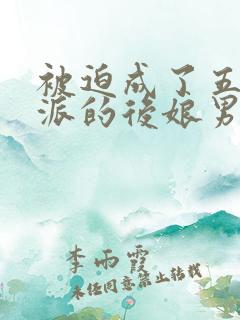 被迫成了五
派的後娘男
李雨霞
未经同意禁止转载